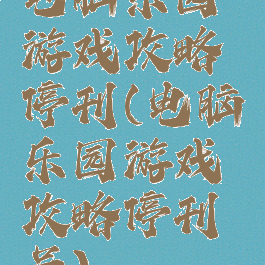 电脑乐园
游戏攻略
停刊(电脑
乐园游戏
攻略停刊